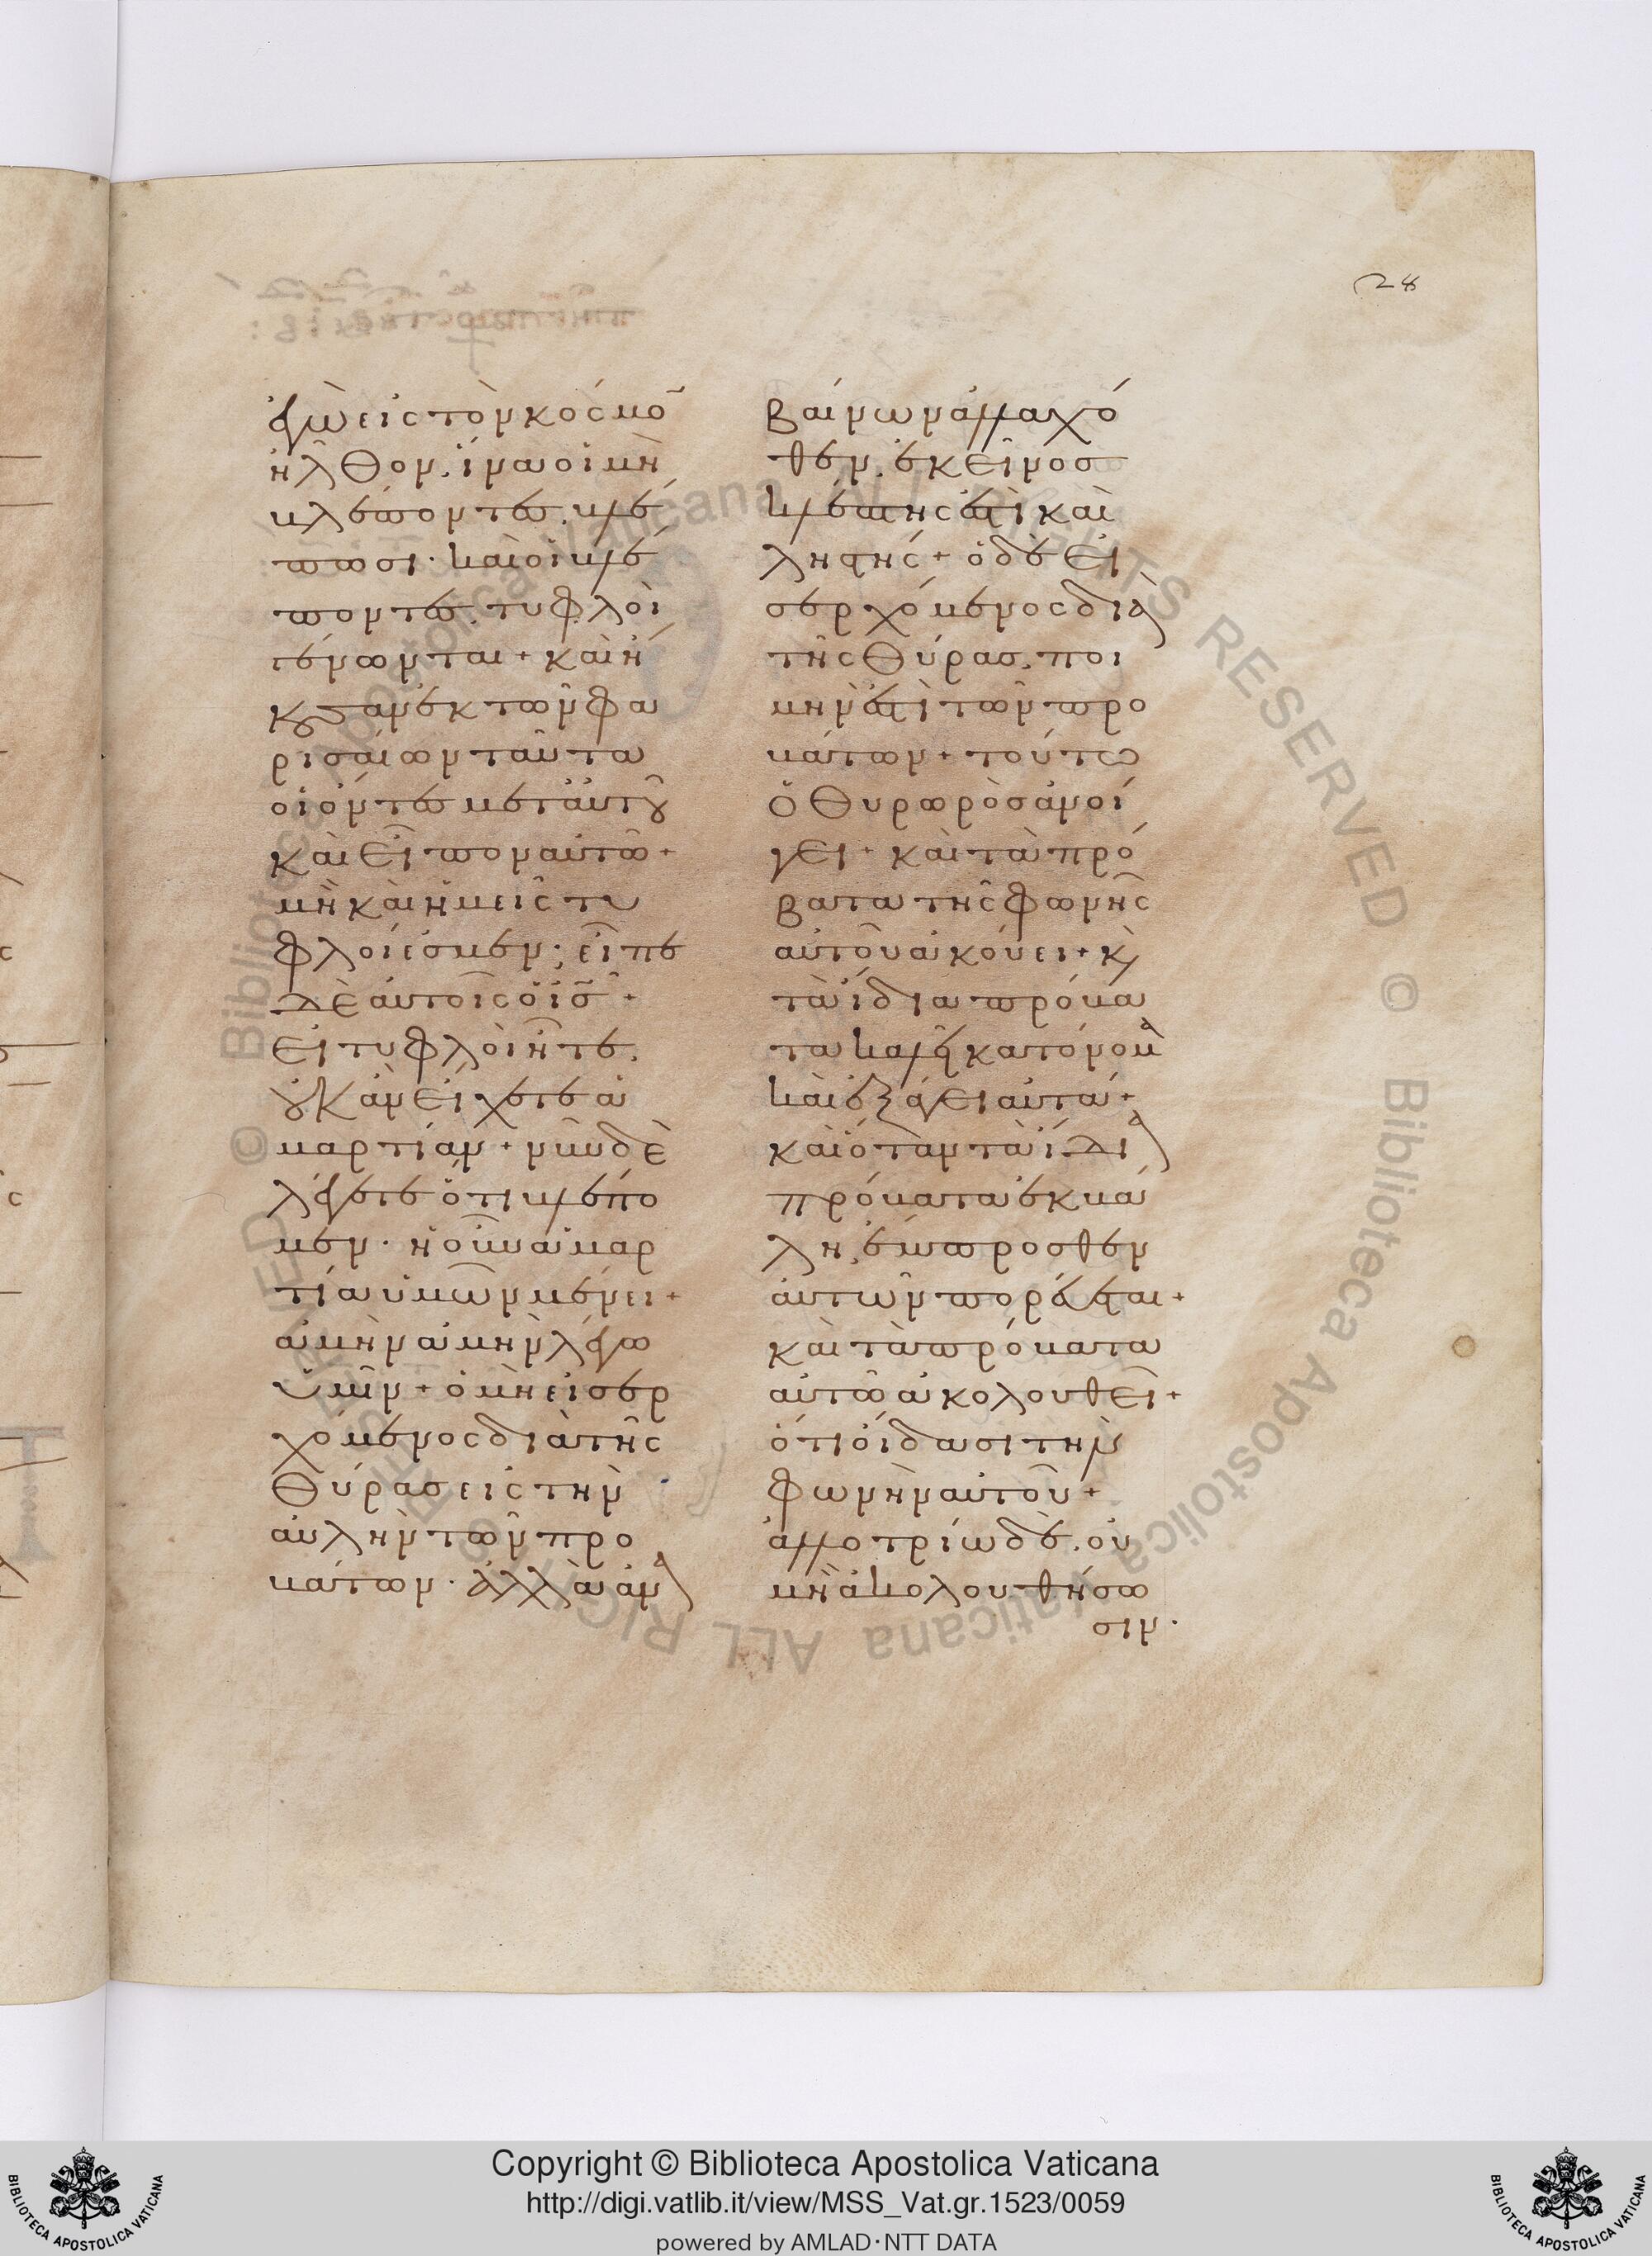 28
ἐγὼ εἰς τὸν κόσμο̄
ἦλθον, ἵνα οἱ μὴ
βλέποντες, βλέ
πωσι· καὶ οἱ βλέ
ποντες, τυφλοὶ
γένωνται + καὶ ἤ
κουσαν ἐκ τῶν φα
ρισαίων ταῦτα
οἱ ὄντες μετ' αὐτοῦ
καὶ εἶπον αὐτῶ +
μὴ καὶ ἡμεῖς τυ
φλοί ἐσμεν; εἶπε
δὲ αὐτοῖς ὁ ις̄ +
εἰ τυφλοὶ ἦτε,
οὐκ ἂν εἴχετε ἁ
μαρτίαν + νῦν δὲ
λέγετε ὅτι βλέπο
μεν· ἡ οὖν ἁμαρ
τία ὑμῶν μένει +
ἀμὴν ἀμὴν λέγω
ὑμῖν + ὁ μὴ εἰσερ
χόμενος διὰ τῆς
θύρας εἰς τὴν
αὐλὴν τῶν προ
βάτων· ἀλλὰ ἀνα
βαίνων ἀλλαχό
θεν, ἐκεῖνος
κλέπτης ἐστὶ καὶ
ληστής + ὁ δὲ εἰ
σερχόμενος διὰ
τῆς θύρας, ποι
μήν ἐστι τῶν προ
βάτων + τούτω
ὁ θυρωρὸς ἀνοί
γει + καὶ τὰ πρό
βατα τῆς φωνῆς
αὐτοῦ ἀκούει + κ
τὰ ἴδια πρόβα
τα καλεῖ κατ' ὄνομα
καὶ ἐξάγει αὐτά +
καὶ ὅταν τὰ ἴδια
πρόβατα ἐκβά
λη, ἔμπροσθεν
αὐτῶν πορεύεται +
καὶ τὰ πρόβατα
αὐτῶ ἀκολουθεῖ +
ὅτι οἴδασι τὴν
φωνὴν αὐτοῦ +
ἀλλοτρίω δὲ, οὐ
μὴ ἀκολουθήσω
σιν·
Copyright © Biblioteca Apostolica Vaticana
http://digi.vatlib.it/view/MSS_Vat.gr.1523/0059
powered by AMLAD·NTT DATA
BIBLIOTECA APOSTOLICA VATICANA
BIBLIOTECA APOSTOLICA VATICANA
© Biblioteca Apostolica Vaticana ALL RIGHTS RESERVED © Biblioteca Apostolica Vaticana ALL RIGHTS RESERVED